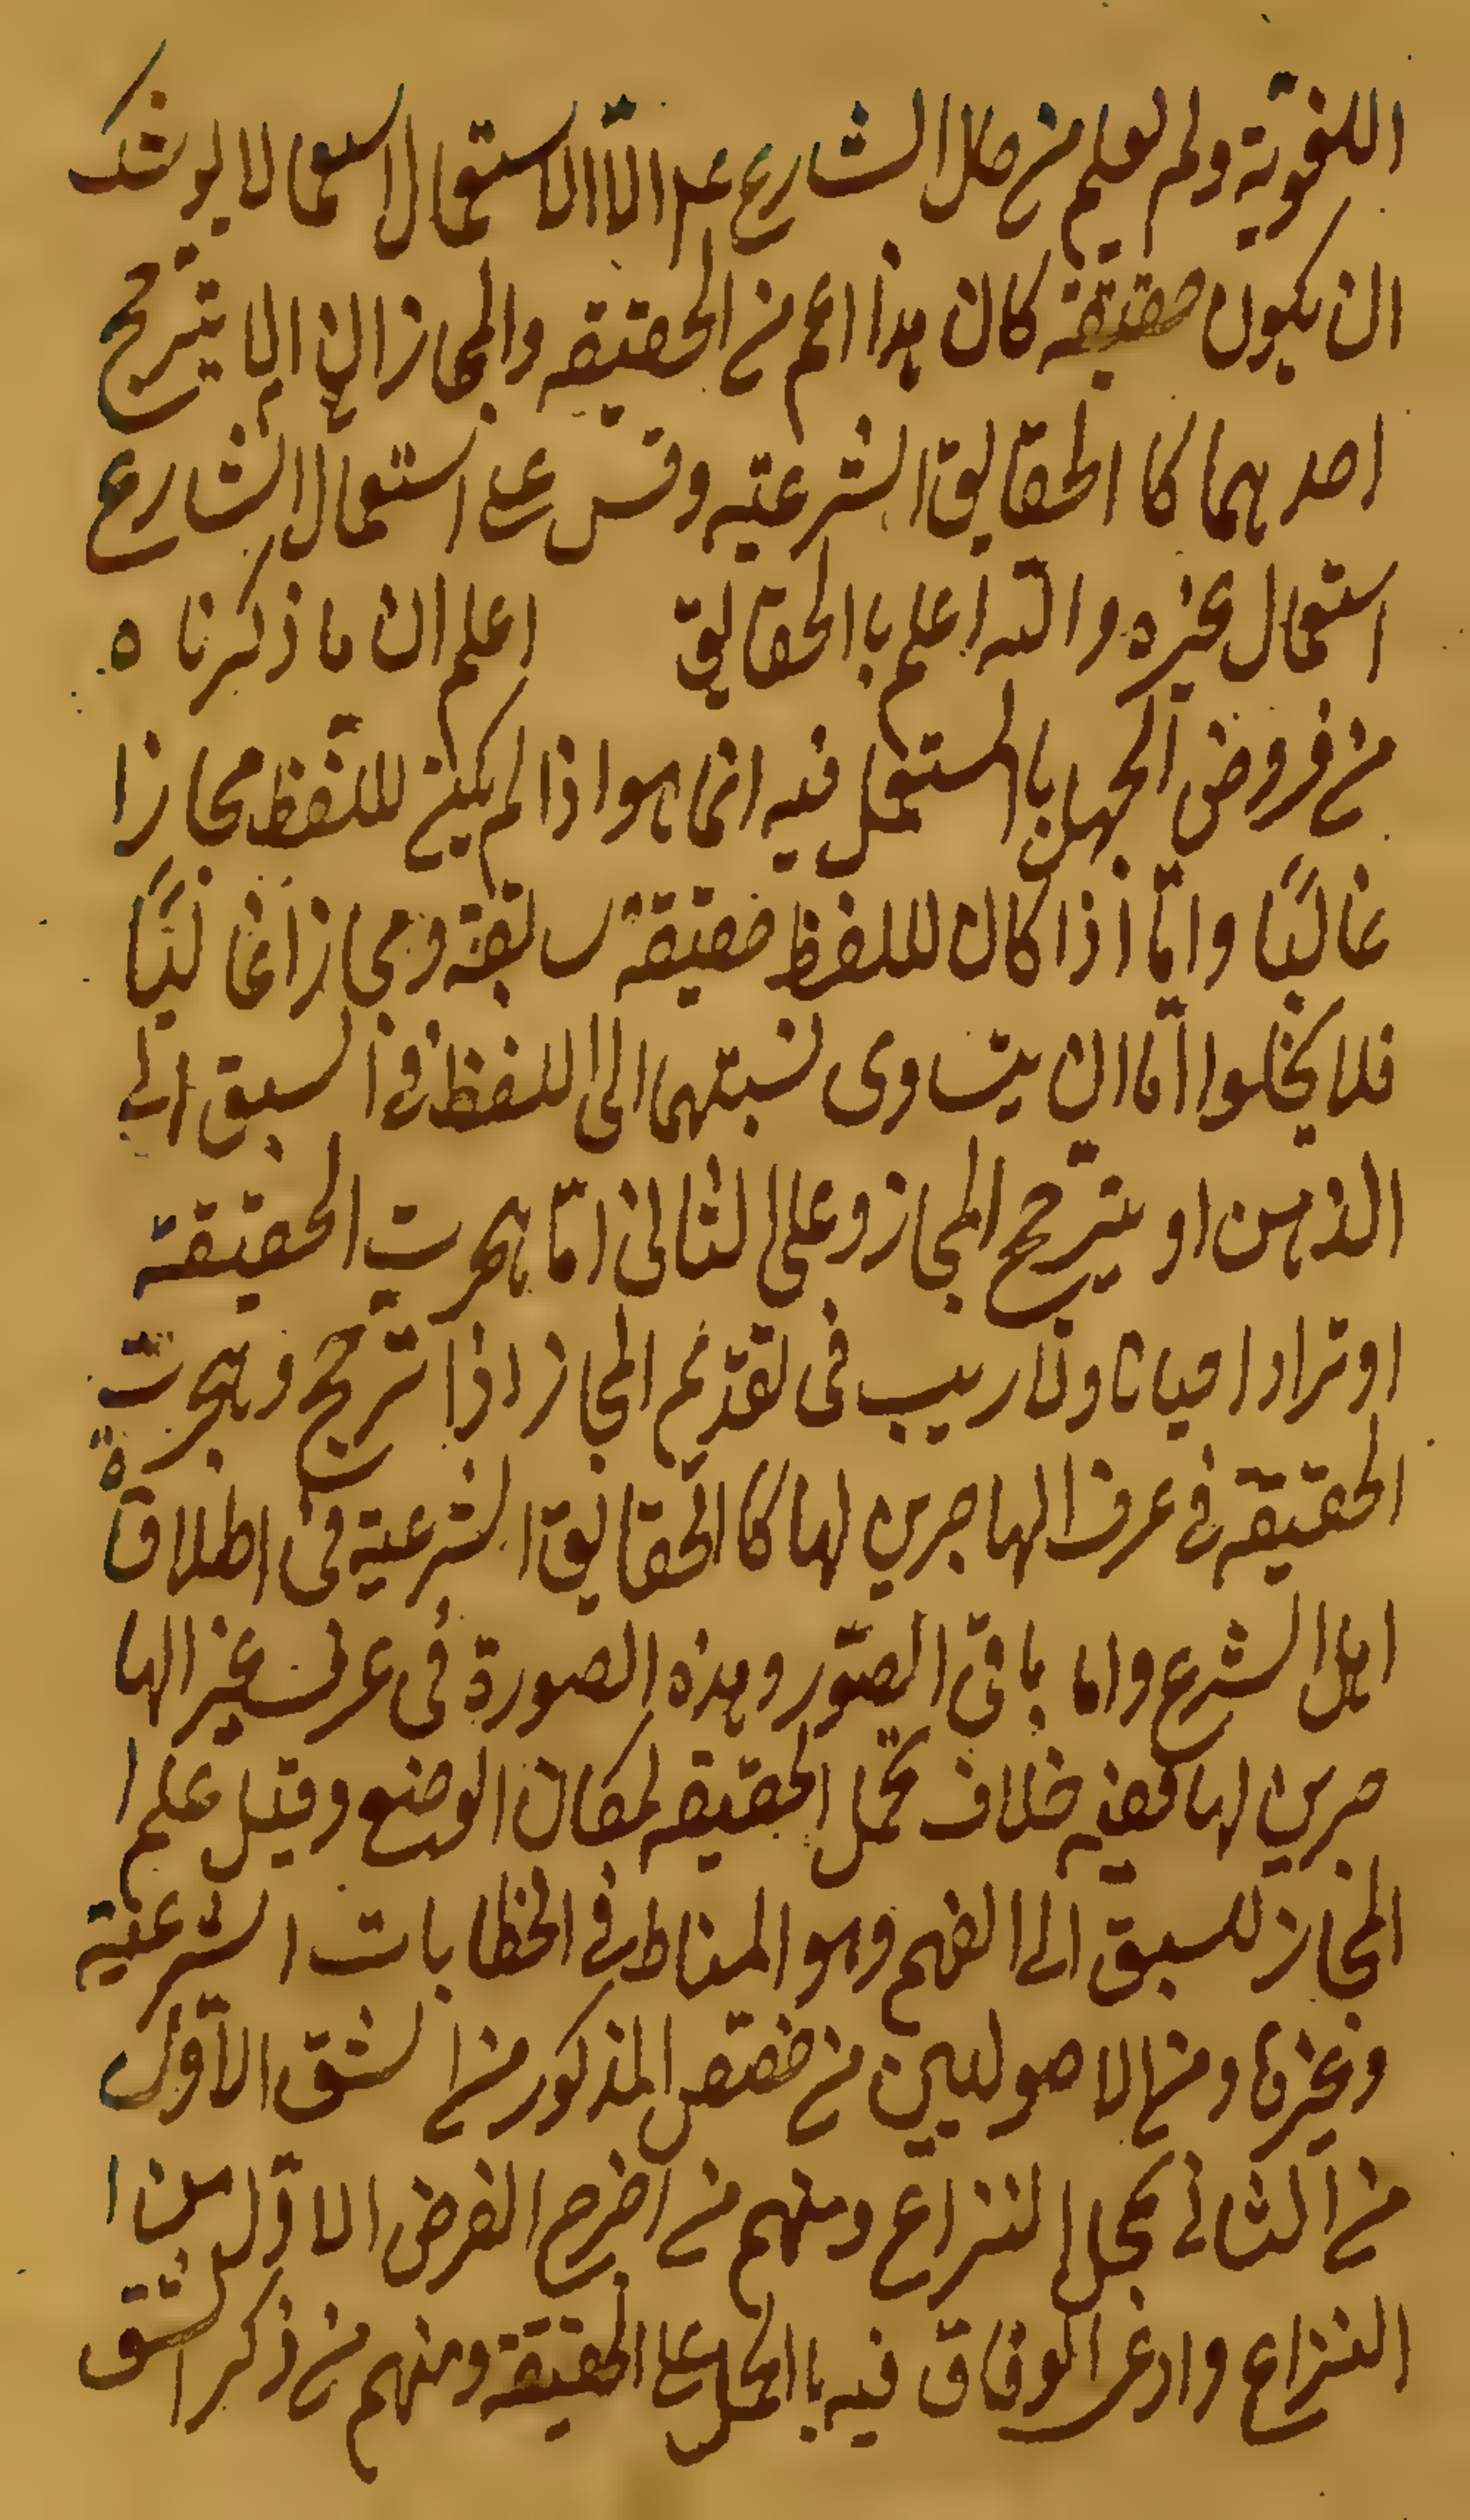 اللغوية ولم يعلم من حال الشارع عم الا الاستعمال استعمالا يوشك
ان يكون حقيقة كان هذا اعم من الحقيقه والمجاز الى ان يترجح
احدهما كا الحقايق الشرعيه وقس على استعمال الشارع
استعمال غيره والله اعلم با الحقايق اعلم ان ما ذكرناه
من فروض الجهل با المستعمل فيه انما هوا اذا لم يكن للفظ مجازا
غالبًا وامّا اذا كان للفظ حقيقة سابقة ومجازا غالبًا
فلا يخلوا امّا ان يتساوى نسبتهما الى اللفظ في السبق الى
الذهن او يترجح المجاز وعلى الثانى امّا هجرت الحقيقة
او تراد احيانا ولا ريب فى تقدّيم المجاز اذا ترجح وهجرت
الحقيقة في عرف الهاجرين لها كا الحقايق الشرعية فى اطلاقة
اهل الشرع واما باقى الصّور وهذه الصورة فى عرف غير الها
جرين لها ففيه خلاف تحمل الحقيقه لمكان الوضع وقيل علم ا
المجاز للسبق الى الفهم وهو المناط في الخطابات الشرعية
وغيرها ومن الاصوليين من خصّص المذكور من الشق الاوّل
من الثانى محل النزاع ومنهم من اخرج الفرض الاوّل من ا
النزاع وادعى الوفاق فيه با الحمل على الحقيقة ومنهم من ذكر الشق